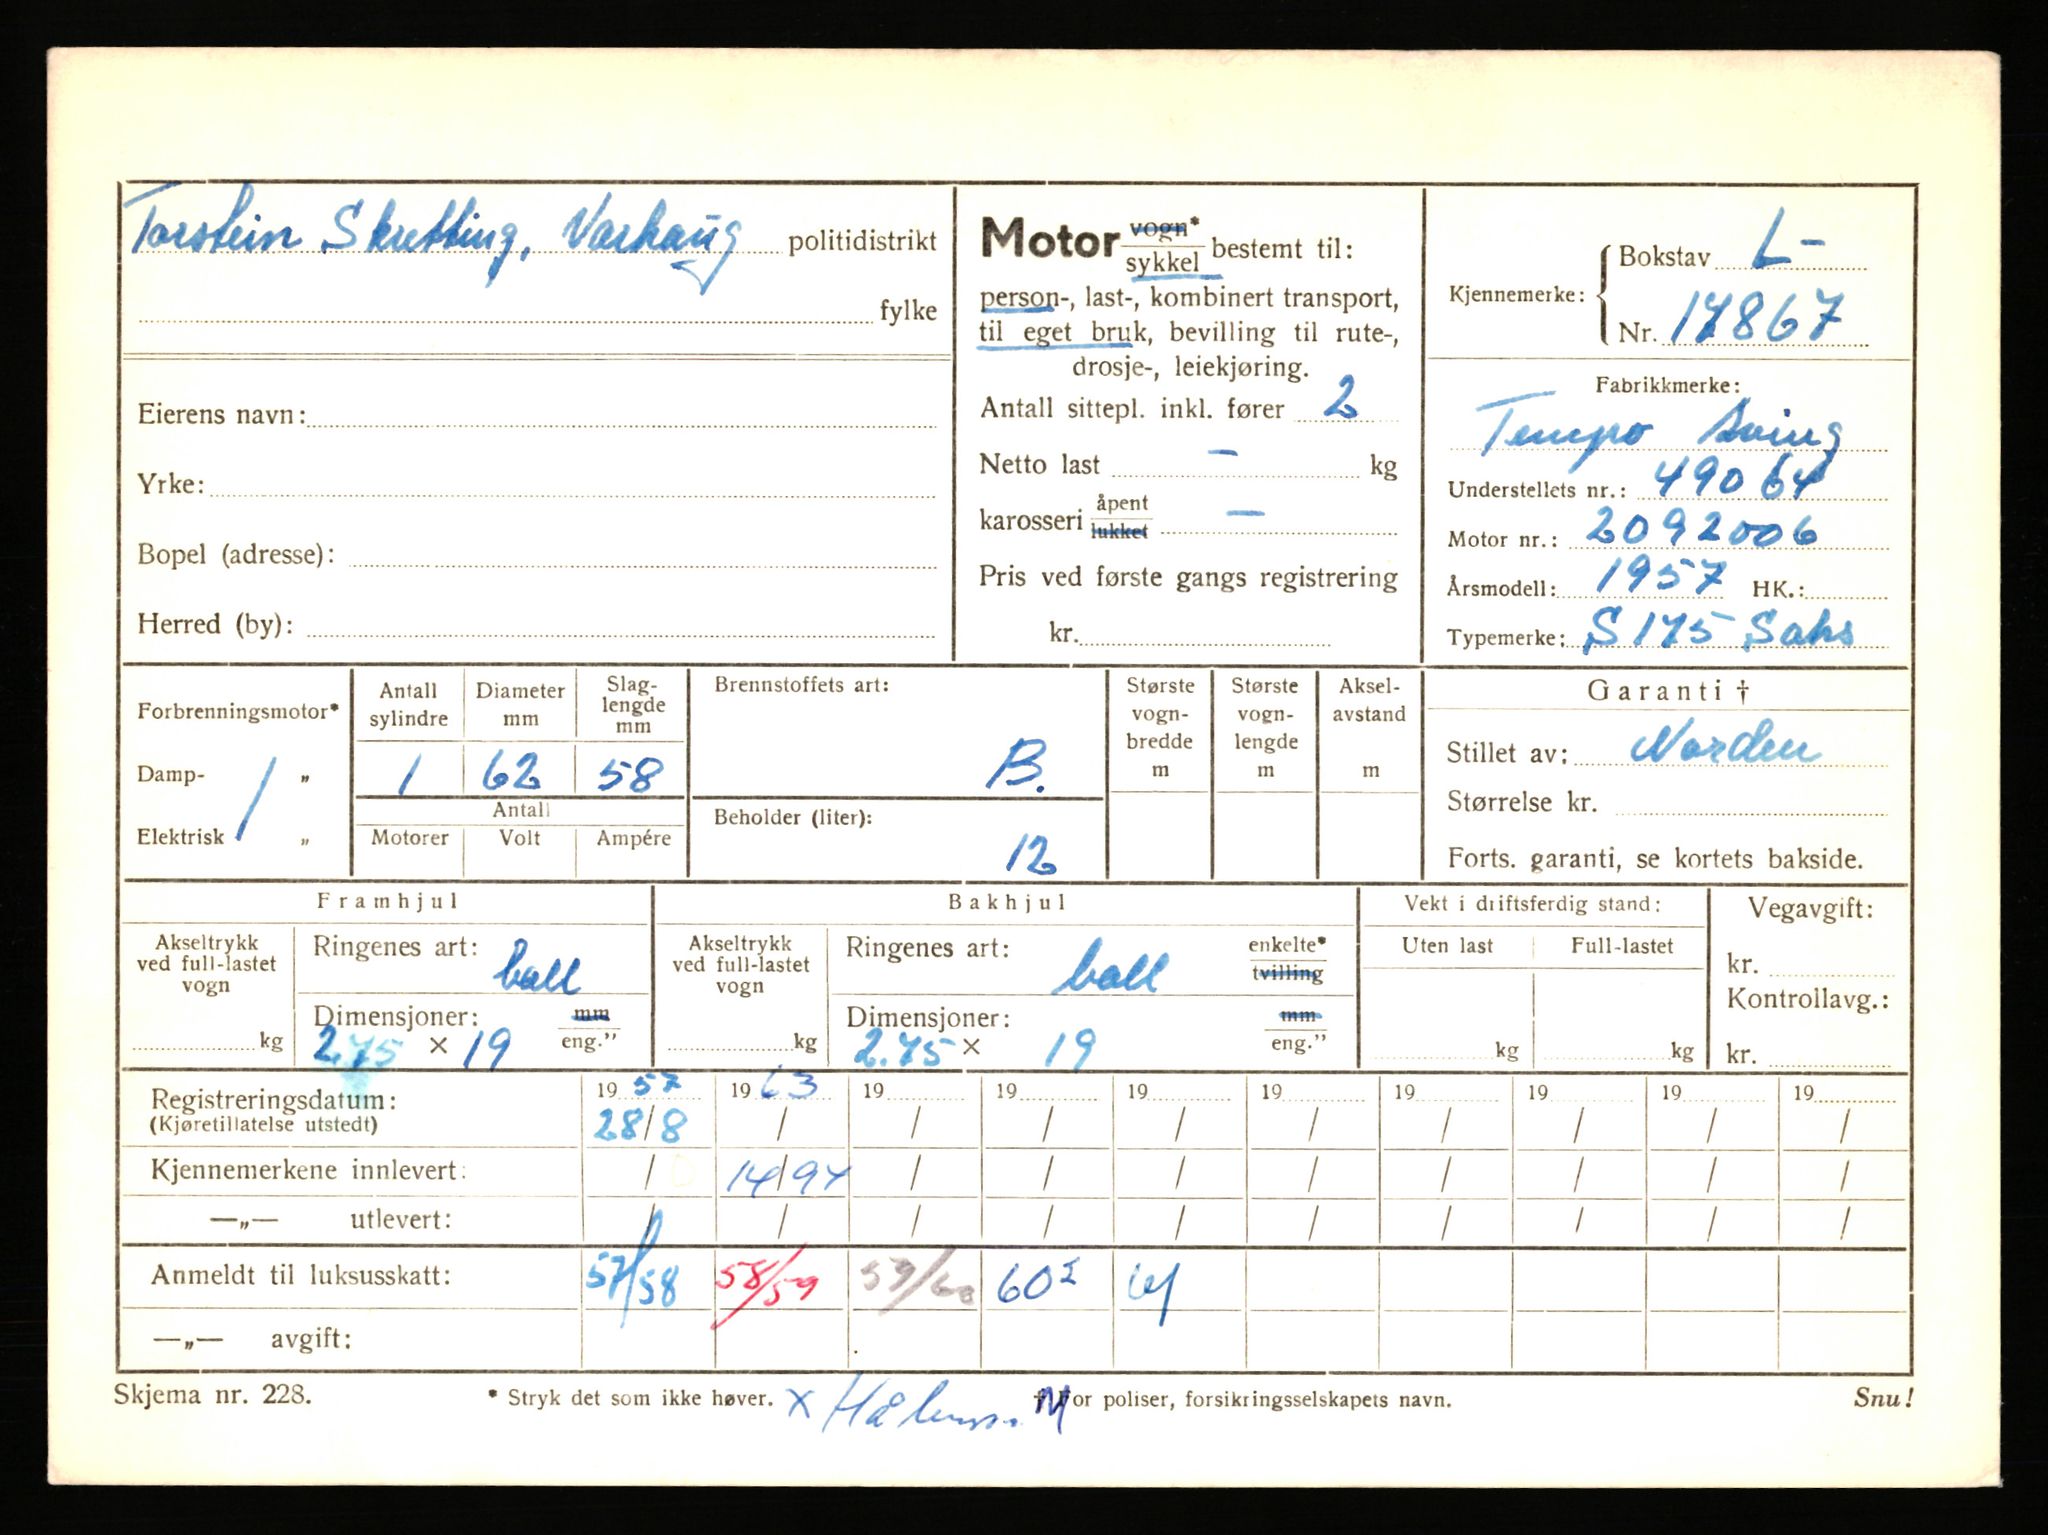 Torstein Skretting, Varhaug politidistrikt
fylke
Eierens navn:
Yrke:
Bopel (adresse):
Herred (by):
Motor vogn* sykkel bestemt til:
person-, last-, kombinert transport,
til eget bruk, bevilling til rute-,
drosje-, leiekjøring.
Antall sittepl. inkl. fører 2
Netto last – kg
karosseri åpent lukket –
Pris ved første gangs registrering
kr.
Kjennemerke: Bokstav L-
Nr. 17867
Fabrikkmerke:
Tempo Swing
Understellets nr.: 49064
Motor nr.: 2092006
Årsmodell: 1957 HK.:
Typemerke: S 175 Sahs
Forbrenningsmotor*
Damp- "
Elektrisk "
Antall sylindre 1
Diameter mm 62
Slag-lengde mm 58
Antall
Motorer Volt Ampére
Brennstoffets art: B.
Beholder (liter): 12
Største vogn-bredde m
Største vogn-lengde m
Aksel-avstand m
Garanti †
Stillet av: Norden
Størrelse kr.
Forts. garanti, se kortets bakside.
Framhjul
Akseltrykk ved full-lastet vogn kg
Ringenes art: ball
Dimensjoner: mm eng."
2.75 × 19
Bakhjul
Akseltrykk ved full-lastet vogn kg
Ringenes art: ball enkelte* tvilling
Dimensjoner: mm eng."
2.75 × 19
Vekt i driftsferdig stand:
Uten last Full-lastet
kg kg
Vegavgift:
kr.
Kontrollavg.:
kr.
Registreringsdatum: 19 57 19 63 19 19 19 19 19 19 19 19
(Kjøretillatelse utstedt) 28/8 / / / / / / / / /
Kjennemerkene innlevert: / / / / / / / / /
—„— utlevert: / / / / / / / / / /
Anmeldt til luksusskatt: 57/58 58/59 59/60 60 61
—„— avgift:
Skjema nr. 228. * Stryk det som ikke høver. x † For poliser, forsikringsselskapets navn. Snu!